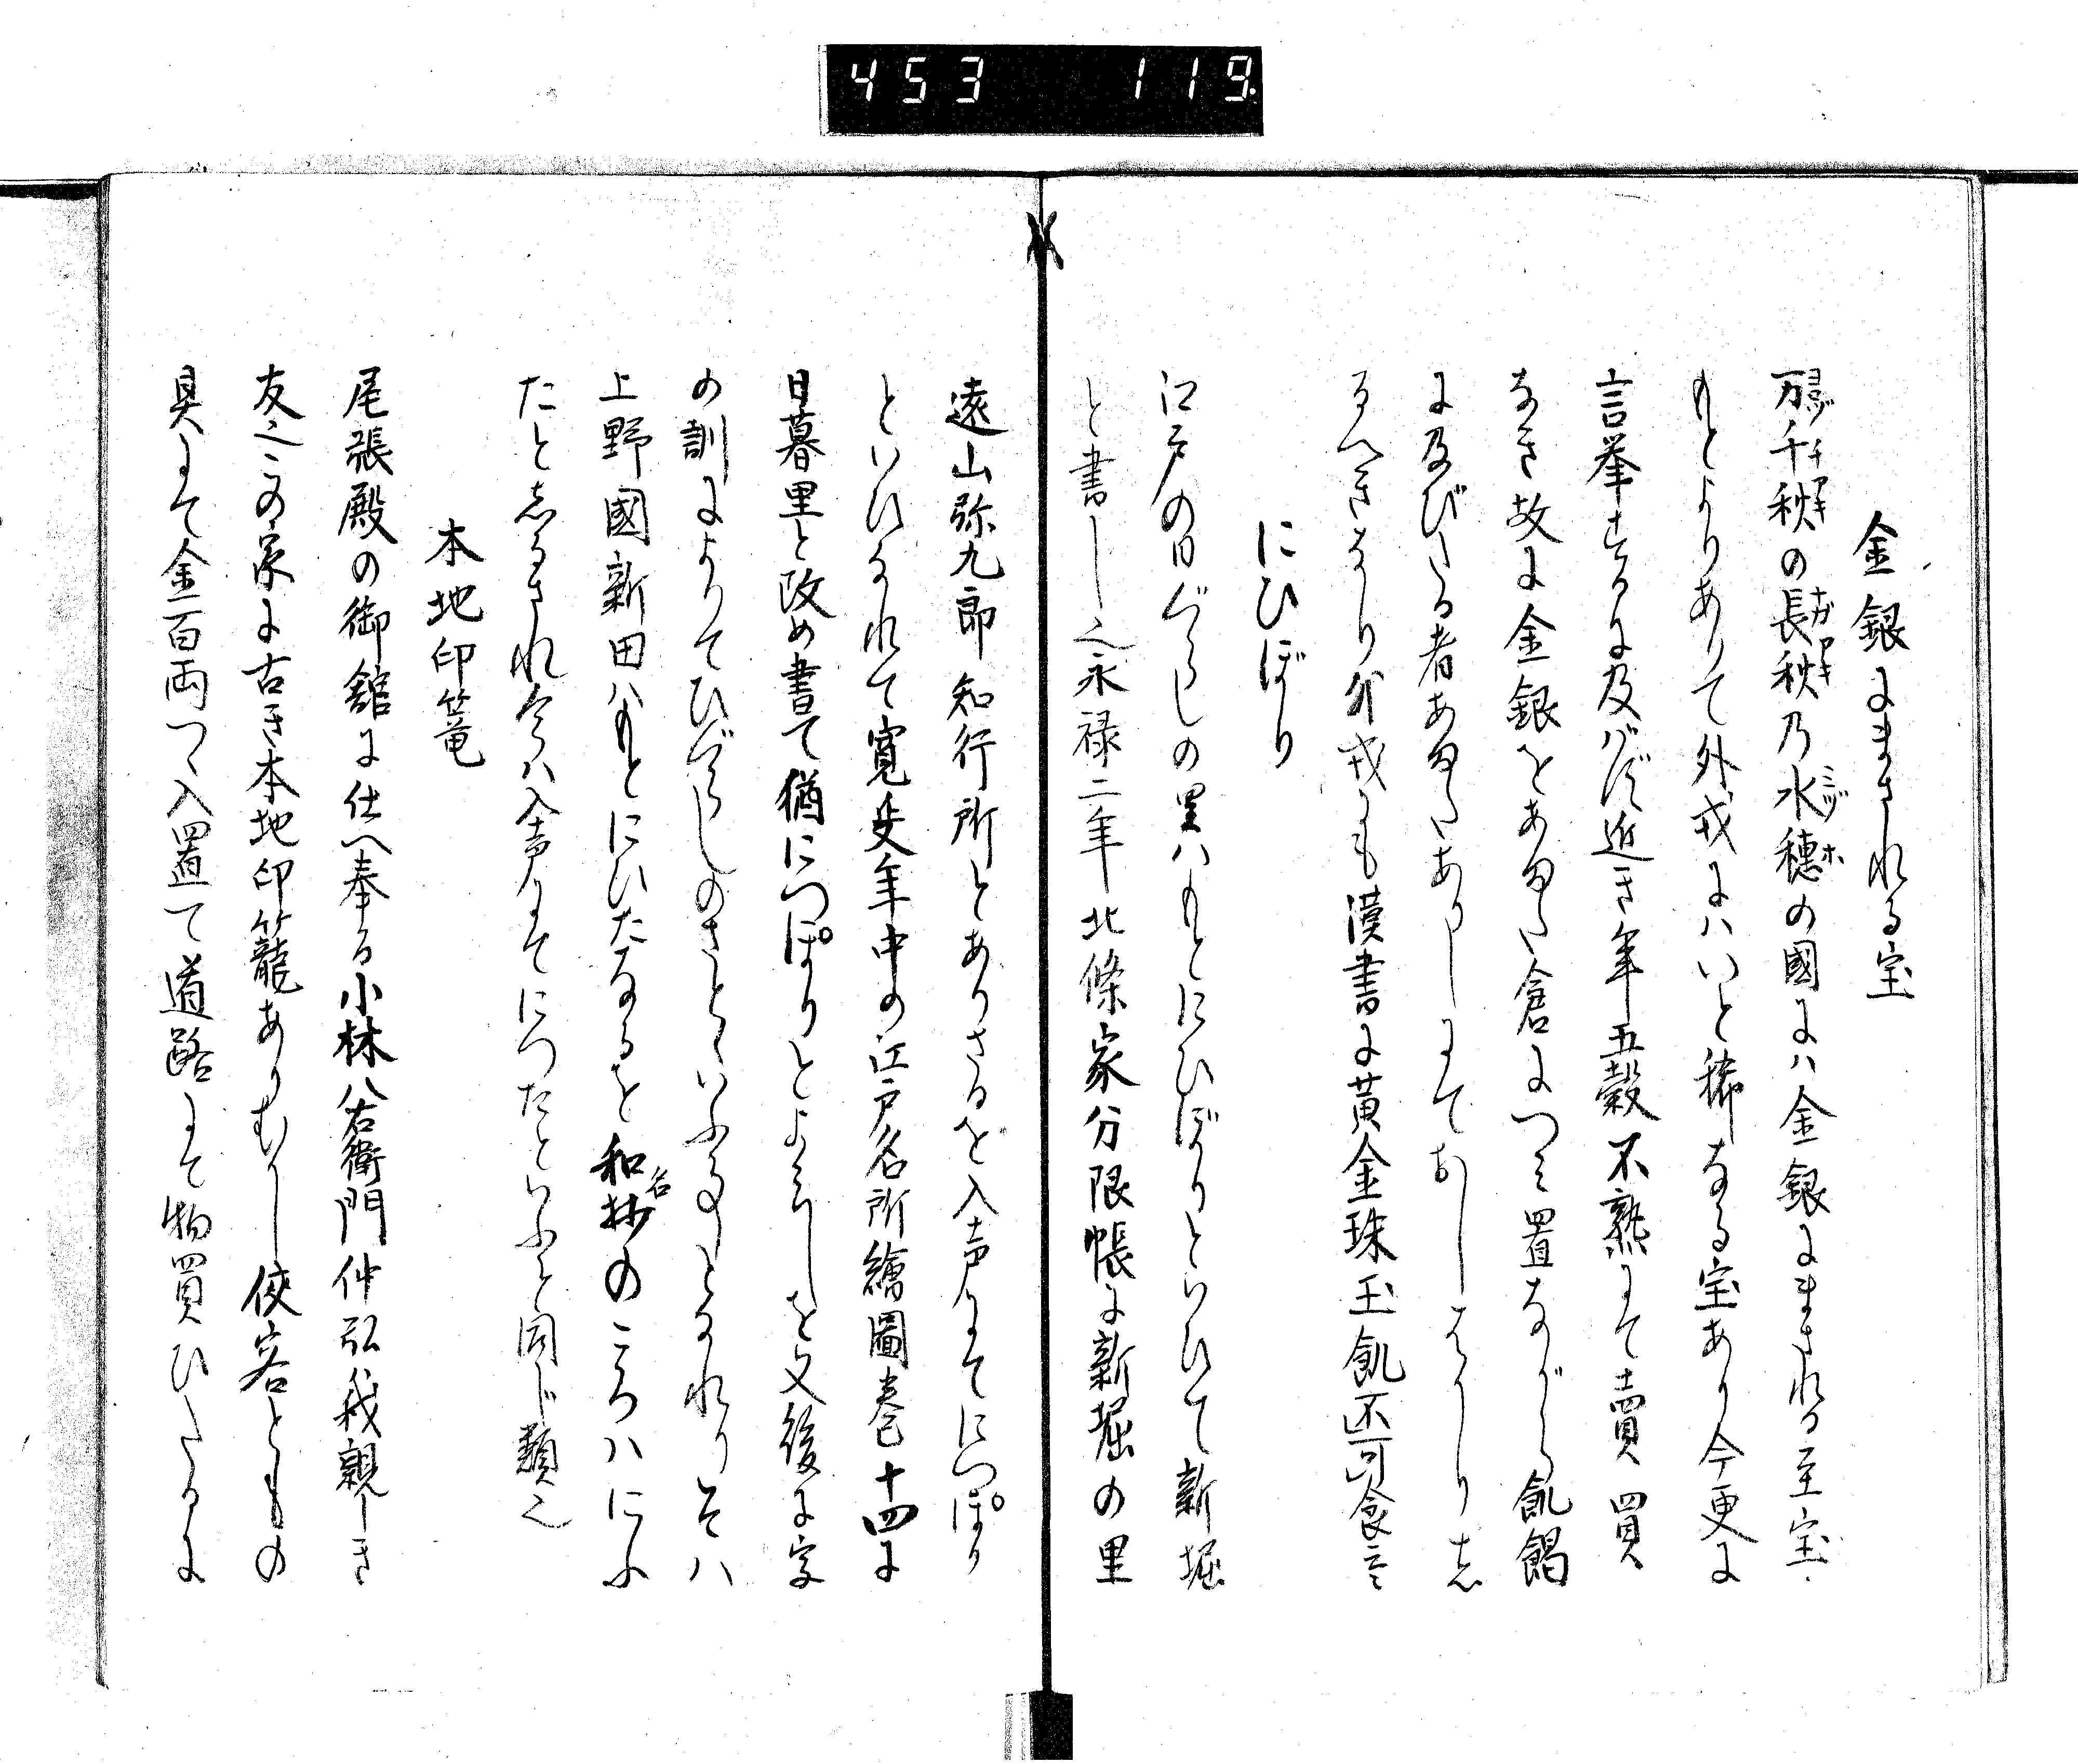 453 119
金銀にまされる宝
万千秋の長秋乃水穂の國にハ金銀にまされる至宝
もとよりありて外戎にハいと稀なる宝あり今更に
言挙するに及バず近き年五穀不熟にて賣買
なき故に金銀をあまた倉につミ置ながら飢餲
に及びたる者あまたありしにておしはかりし
るへきなり外戎にも漢書に黄金珠玉飢不可食云
にひぼり
江戸の日ぐらしの里ハもとにひぼりといひて新堀
と書し也永禄二年北條家分限帳に新堀の里
遠山弥九郎知行所とありさるを入声にてにつぽり
といひなれて寛延年中の江戸名所繪圖巻十四に
日暮里と改め書て猶につぽりとよミしを又後に字
の訓によりてひぐらしのさとゝいふ事となれりそハ
上野國新田ハもとにひたなるを和名抄のころハにふ
たとしるされ今ハ入声にてにつたといふと同じ類也
本地印篭
尾張殿の御舘に仕へ奉る小林八右衛門仲弘我親しき
友也この家に古き本地印籠ありむかし侠客ともの
具にて金百両つゝ入置て道路にて物買ひたるに